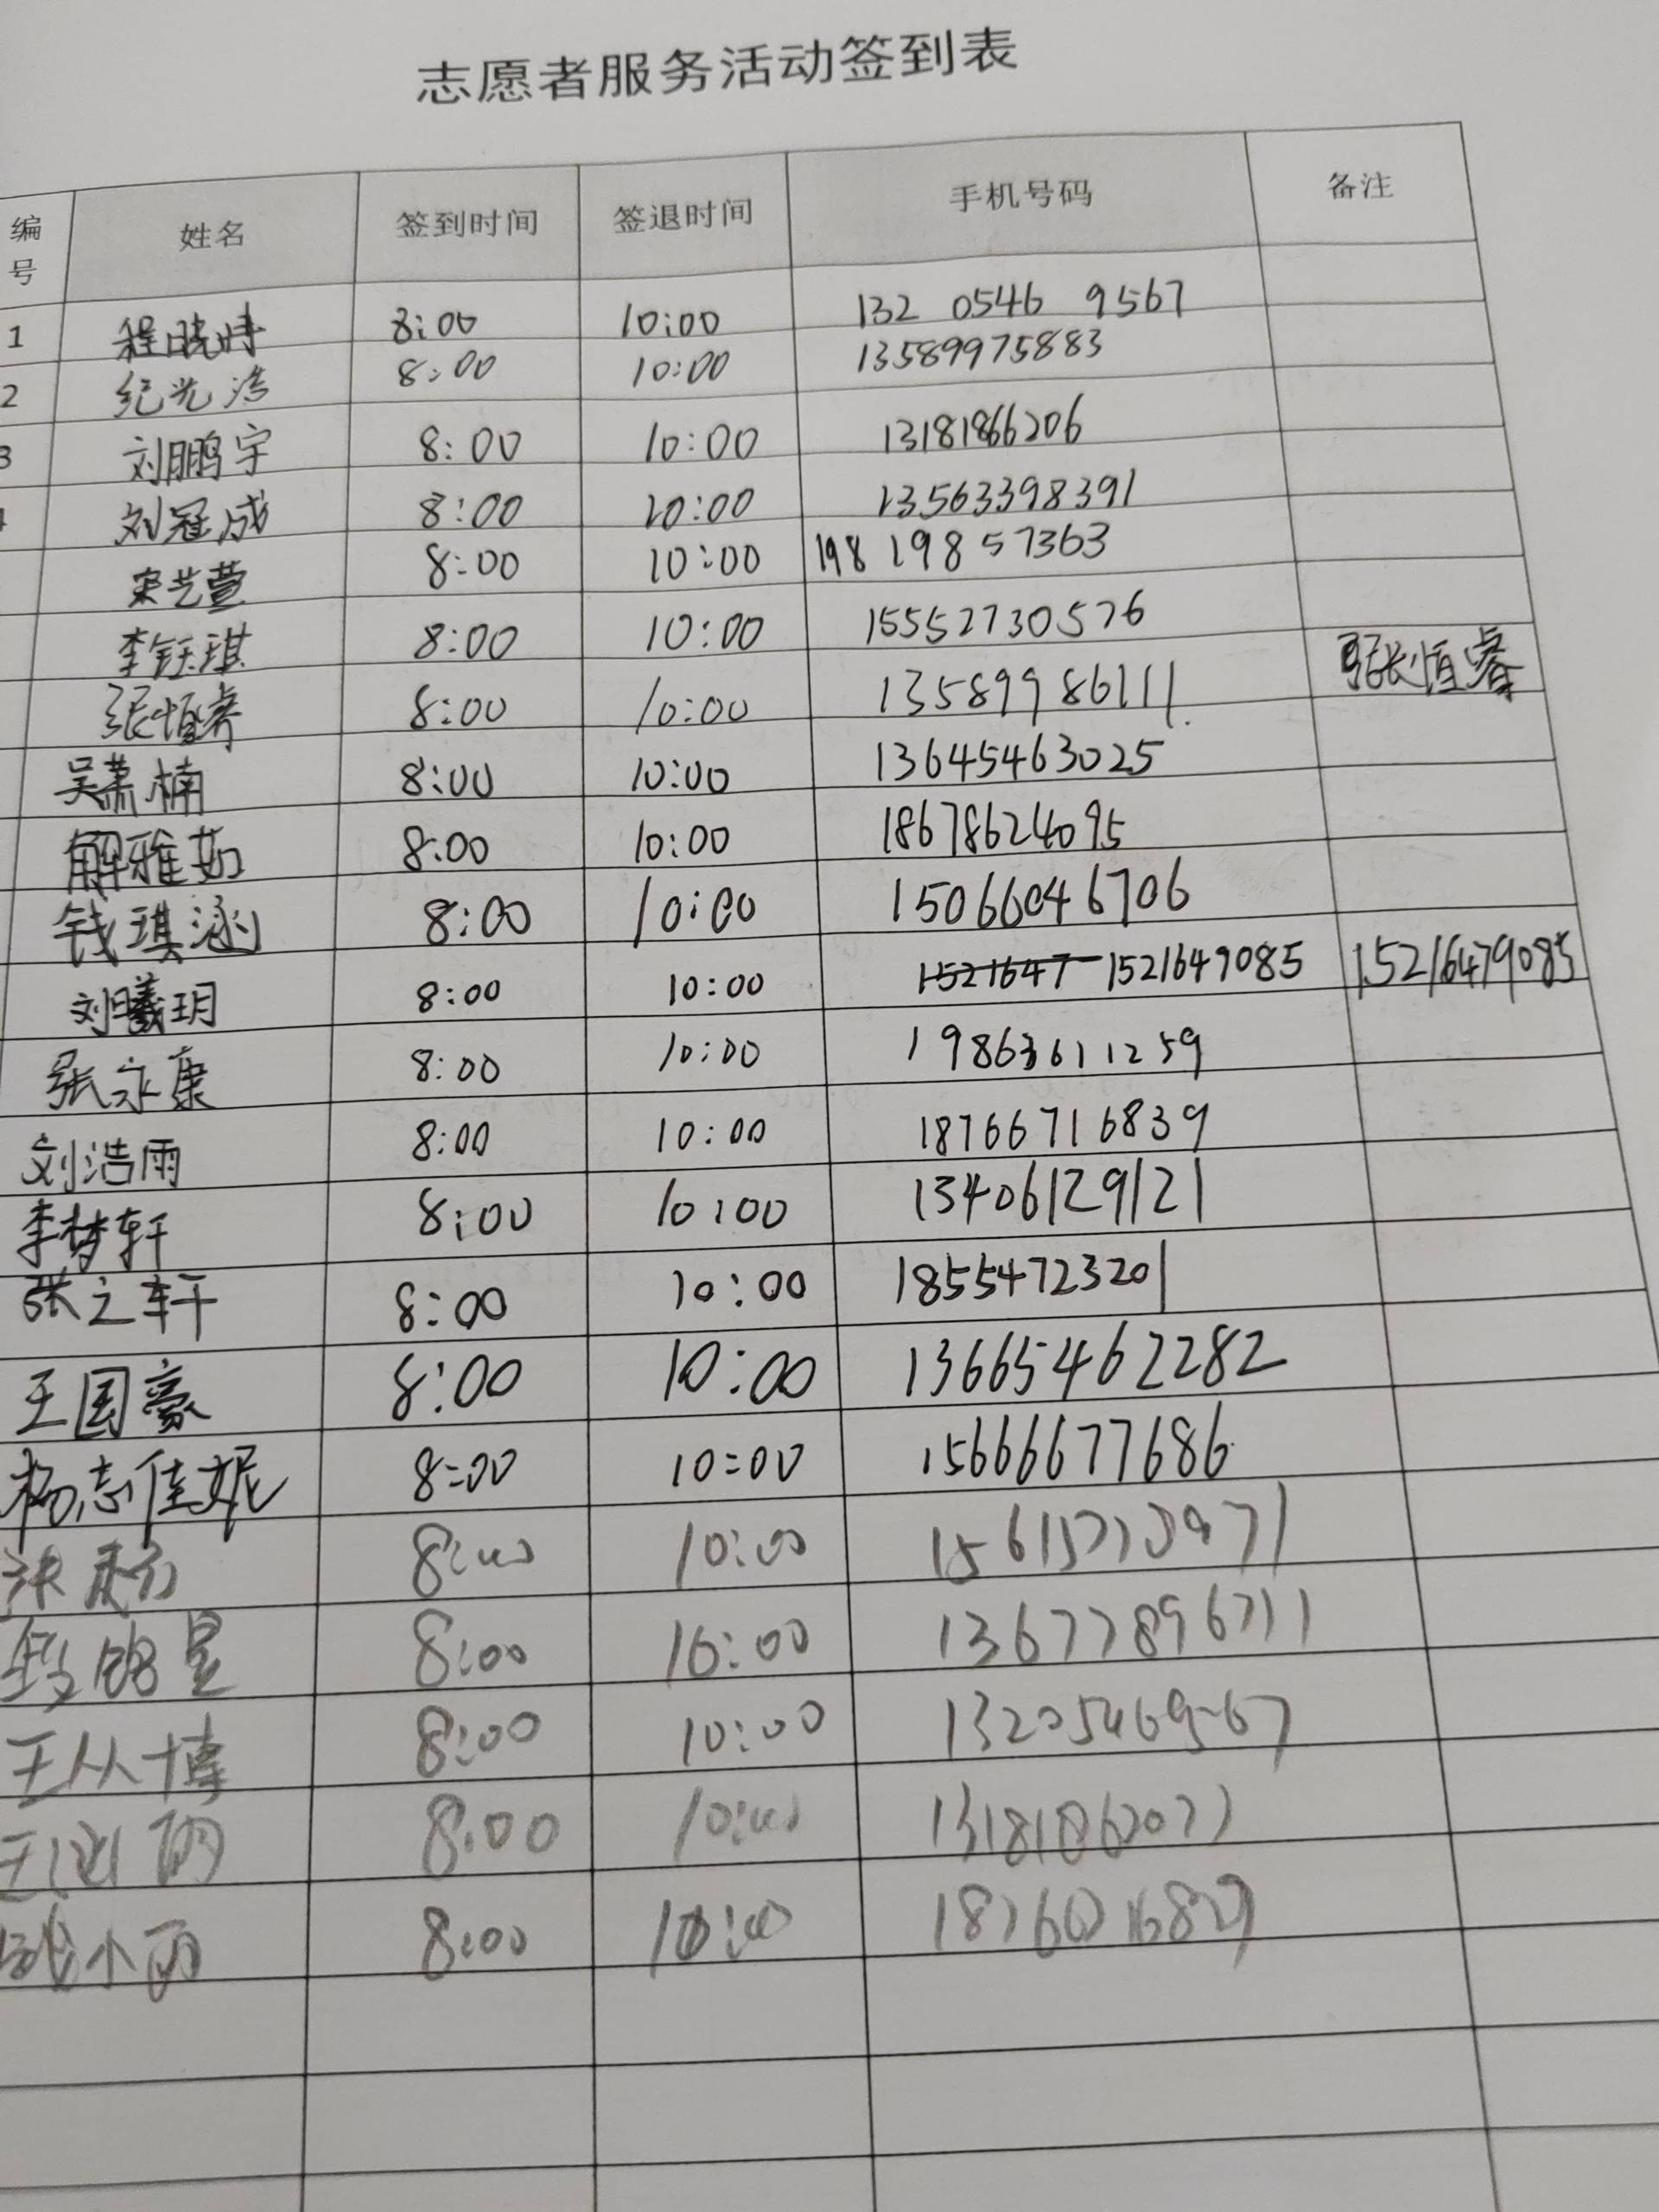 志愿者服务活动签到表
编号 姓名 签到时间 签退时间 手机号码 备注
1 程晓时 8:00 10:00 132 0546 9567
2 纪光浩 8:00 10:00 13589975883
3 刘鹏宇 8:00 10:00 13181866206
刘冠成 8:00 10:00 13563398391
宋艺萱 8:00 10:00 198 19857363
李钰琪 8:00 10:00 15552730576
张恒睿 8:00 10:00 13589986111 张恒睿
吴萧楠 8:00 10:00 13645463025
解雅茹 8:00 10:00 18678624095
钱琪涵 8:00 10:00 15066046706
刘曦玥 8:00 10:00 1521647 1521649085 15216479085
张永康 8:00 10:00 19863611259
刘浩雨 8:00 10:00 18766716839
李梦轩 8:00 10:00 13406129121
张之轩 8:00 10:00 18554723201
王国豪 8:00 10:00 13665462282
杨志佳妮 8:00 10:00 15666677686
8:00 10:00
8:00 10:00 13677896711
王从博 8:00 10:00
8:00 10:00
小雨 8:00 10:00